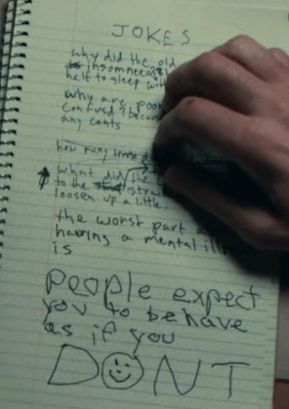 JOKES
why did the old
insomneeac
helt to sleep with
why are poor
confusd becau
any cents
how many
what did the
to the stra
loosen up a little.
the worst part a
having a mental ill
is
PEOPLE expect
you to behave
as if you
DONT